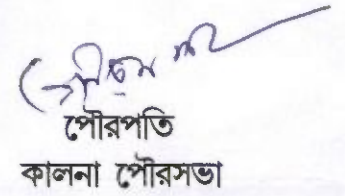 পৌরপতি
কালনা পৌরসভা